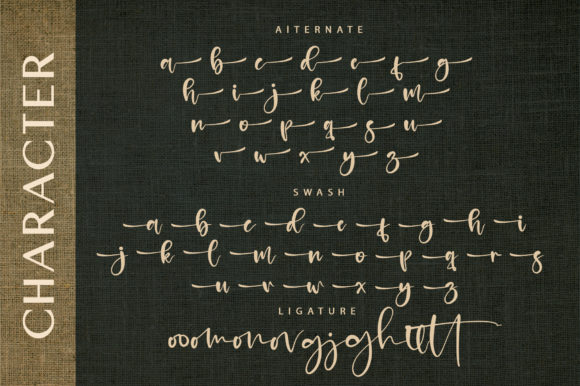 CHARACTER
AITERNATE
a b c d e f g
h i j k l m
n o p q s u
v w x y z
SWASH
a b c d e f g h i
j k l m n o p q r s
u v w x y z
LIGATURE